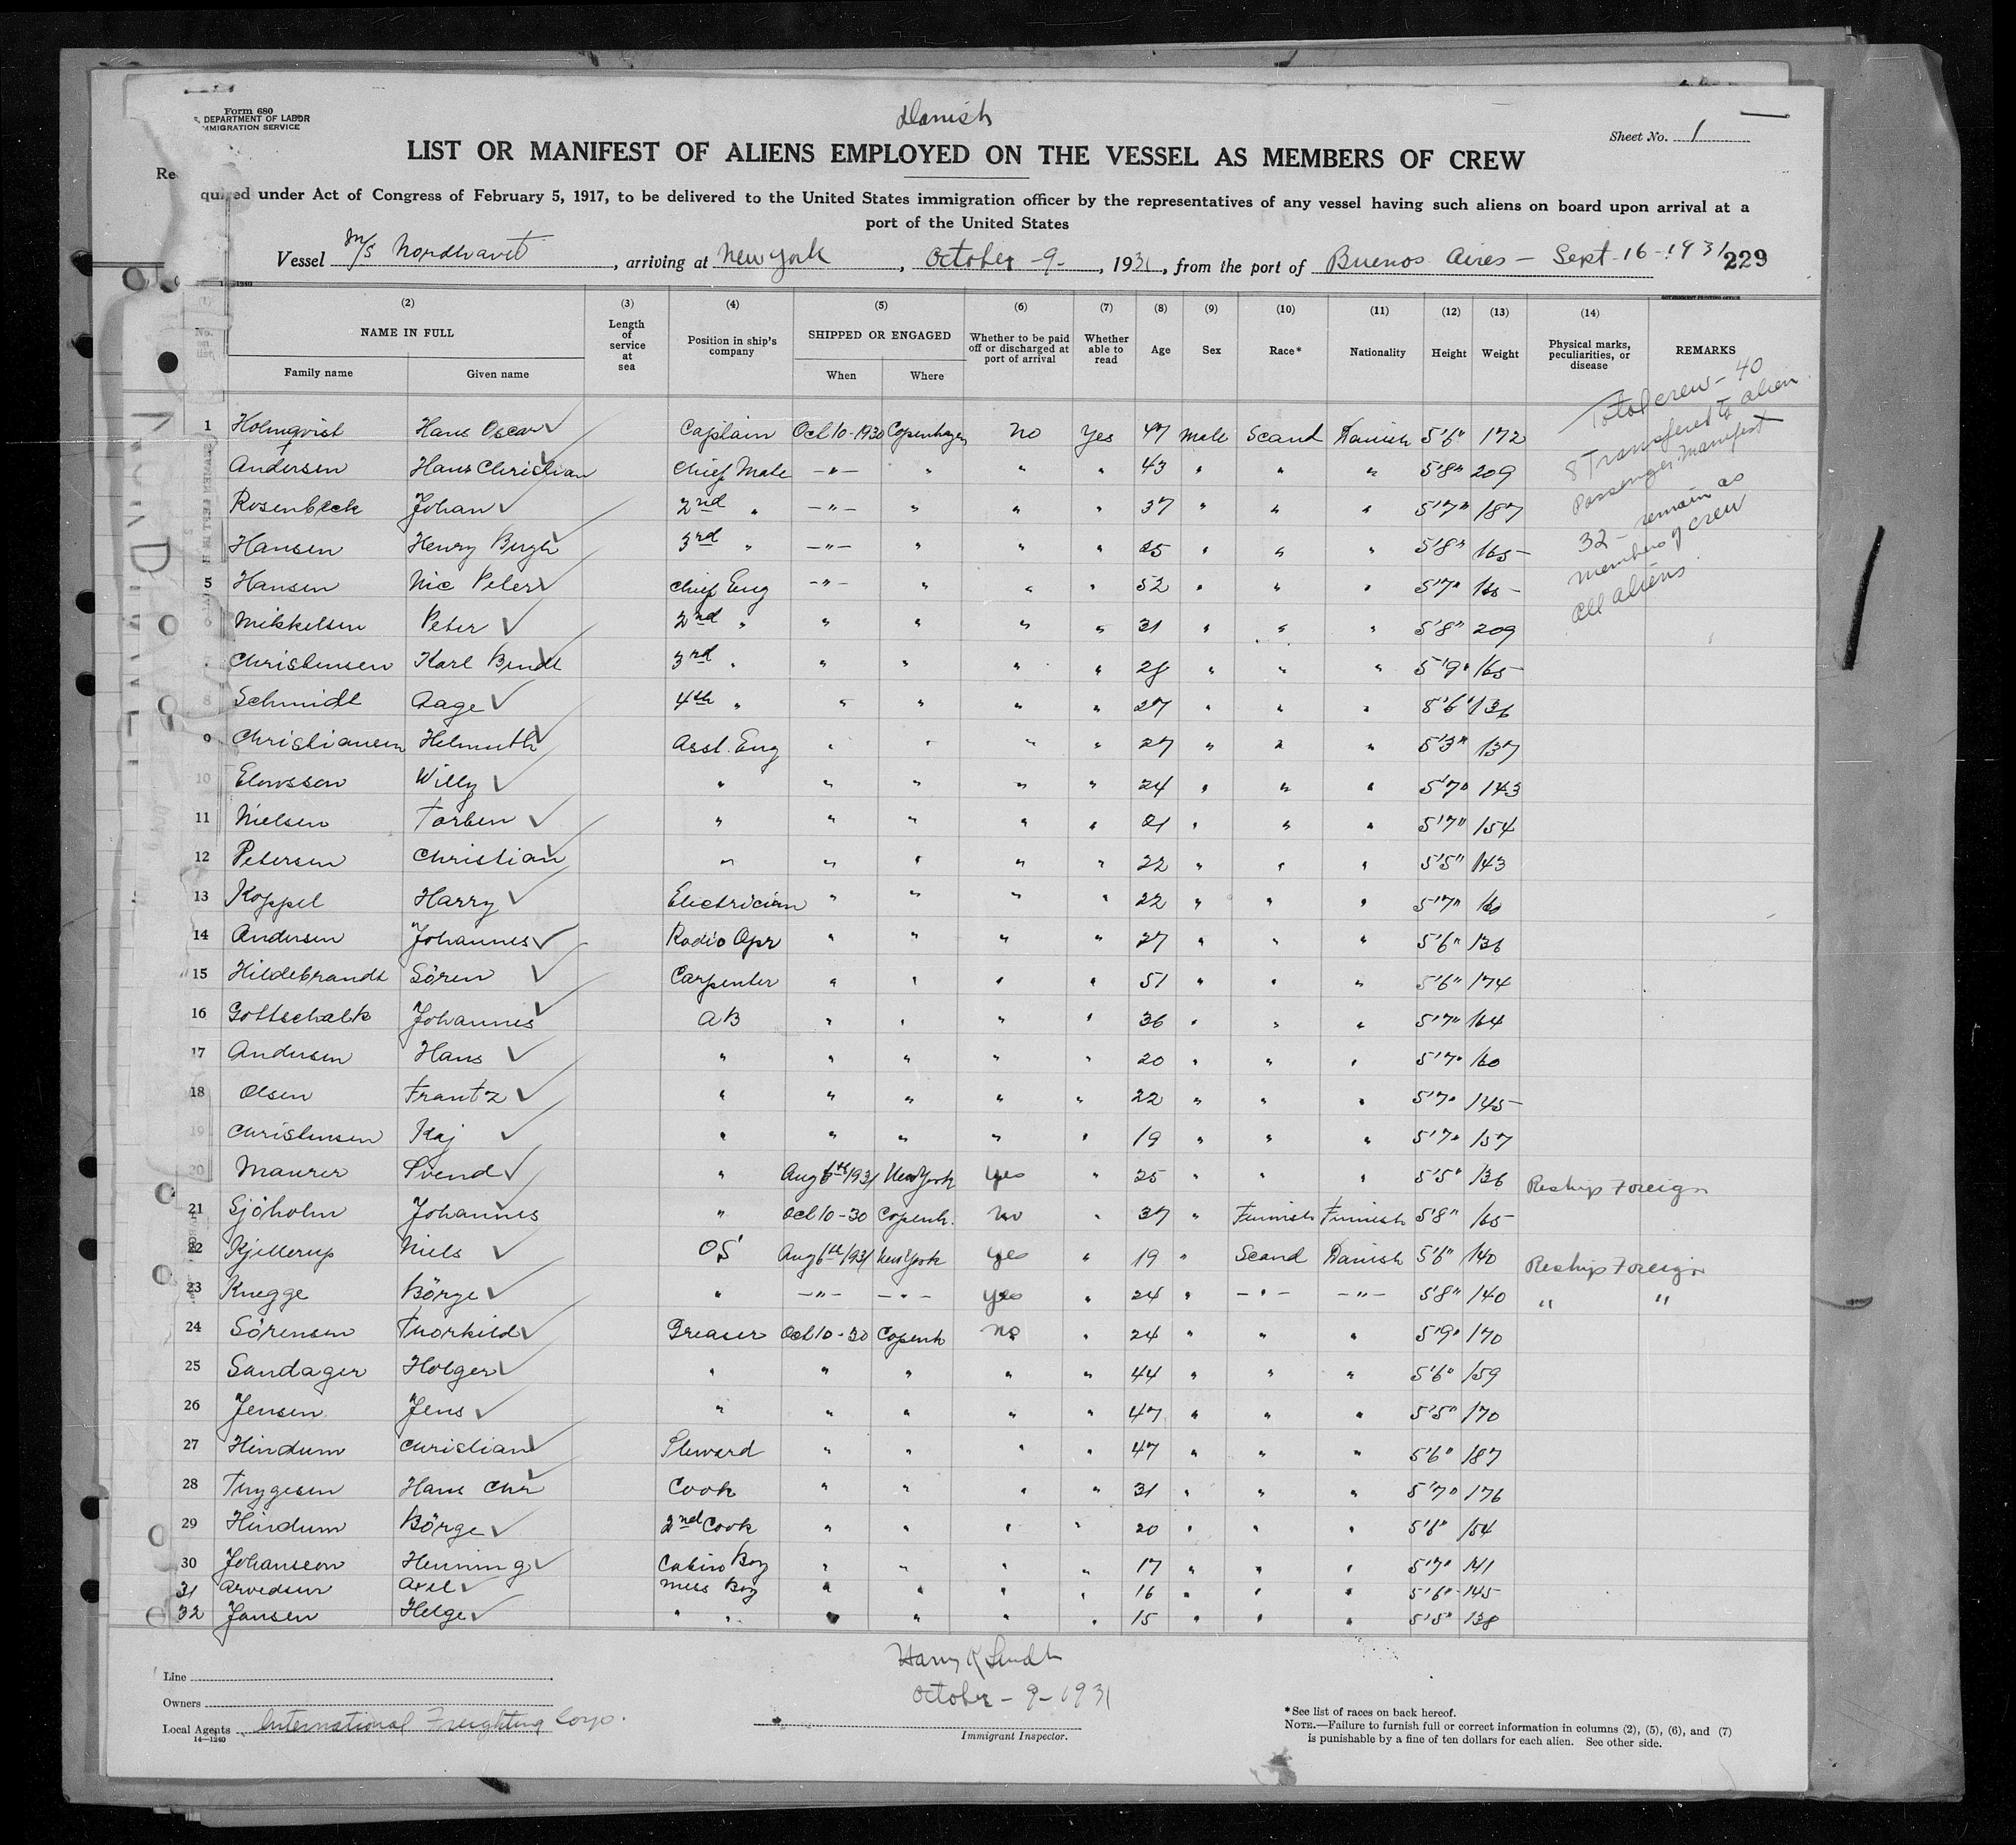 Form 680
S. DEPARTMENT OF LABOR
IMMIGRATION SERVICE
Danish
Sheet No. 1
LIST OR MANIFEST OF ALIENS EMPLOYED ON THE VESSEL AS MEMBERS OF CREW
Re
quired under Act of Congress of February 5, 1917, to be delivered to the United States immigration officer by the representatives of any vessel having such aliens on board upon arrival at a
port of the United States
Vessel M/S Nordhavet, arriving at New York, October -9-, 1931, from the port of Buenos Aires - Sept-16-1931 229
(2) (3) (4) (5) (6) (7) (8) (9) (10) (11) (12) (13) (14)
No. on list NAME IN FULL Length of service at sea Position in ship's company SHIPPED OR ENGAGED Whether to be paid off or discharged at port of arrival Whether able to read Age Sex Race* Nationality Height Weight Physical marks, peculiarities, or disease REMARKS
Family name Given name When Where
Total crew - 40
8 Transferred to alien
Passenger Manifest
32 - remain as
members of crew
all aliens.
1 Holmqvist Hans Oscar Captain Oct 10-1930 Copenhagen No Yes 47 Male Scand Danish 5'6" 172
Andersen Hans Christian Chief Mate -"- " " " 43 " " " 5'8" 209
Rosenbeck Johan 2nd " -"- " " " 37 " " " 5'7" 187
Hansen Henry Bergh 3rd " -"- " " " 25 " " " 5'8" 165
5 Hansen Nic Peter Chief Eng -"- " " " 52 " " " 5'7" 165
Mikkelsen Peter 2nd " " " " " 31 " " " 5'8" 209
Christensen Karl Bendt 3rd " " " " " 28 " " " 5'9" 165
8 Schmidt Aage 4th " " " " " 27 " " " 5'6" 136
9 Christiansen Helmuth Asst. Eng " " " " 27 " " " 5'3" 137
10 Elowsson Willy " " " " " 24 " " " 5'7" 143
11 Nielsen Torben " " " " " 21 " " " 5'7" 154
12 Petersen Christian " " " " " 22 " " " 5'5" 143
13 Koppel Harry Electrician " " " " 22 " " " 5'7" 160
14 Andersen Johannes Radio Opr " " " " 27 " " " 5'6" 136
15 Hildebrandt Sören Carpenter " " " " 51 " " " 5'6" 174
16 Gottschalk Johannes AB " " " " 36 " " " 5'7" 164
17 Andersen Hans " " " " " 20 " " " 5'7" 160
18 Olsen Frantz " " " " " 22 " " " 5'7" 145
19 Christensen Kaj " " " " " 19 " " " 5'7" 157
20 Maurer Svend " Aug 6th 1931 New York yes " 25 " " " 5'5" 136 Reship Foreign
21 Sjöholm Johannes " Oct 10-30 Copenh. no " 37 " Finnish Finnish 5'8" 165
22 Kjellerup Niels OS Aug 6th 1931 New York yes " 19 " Scand Danish 5'6" 140 Reship Foreign
23 Knegge Börge " -"- -"- yes " 24 " -"- -"- 5'8" 140 " "
24 Sörensen Thorkild Greaser Oct 10-30 Copenh no " 24 " " " 5'9" 170
25 Sandager Holger " " " " " 44 " " " 5'6" 159
26 Jensen Jens " " " " " 47 " " " 5'5" 170
27 Hindum Christian Steward " " " " 47 " " " 5'6" 187
28 Thygesen Hans Chr Cook " " " " 31 " " " 5'7" 176
29 Hindum Börge 2nd Cook " " " " 20 " " " 5'6" 154
30 Johanseon Henning Cabin Boy " " " " 17 " " " 5'7" 141
31 Arvedsen Axel Mess Boy " " " " 16 " " " 5'6" 145
32 Jansen Helge " " " " " " 15 " " " 5'5" 138
Line
Owners
Local Agents International Freighting Corp.
14-1240
October - 9 - 1931
Immigrant Inspector.
*See list of races on back hereof.
NOTE.—Failure to furnish full or correct information in columns (2), (5), (6), and (7)
is punishable by a fine of ten dollars for each alien. See other side.